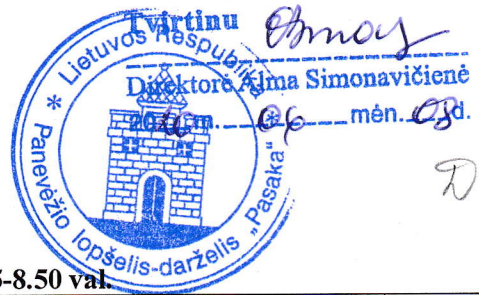 Tvirtinu
Direktorė Alma Simonavičienė
m. 06 mėn. d.
* Lietuvos Respublika *
Panevėžio lopšelis-darželis „Pasaka“
-8.50 val.